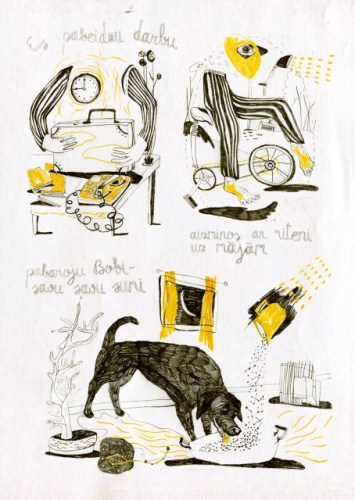 Es pabeidzu darbu
aizminos ar riteni
uz mājām
pabaroju Bobi-
savu savu suni